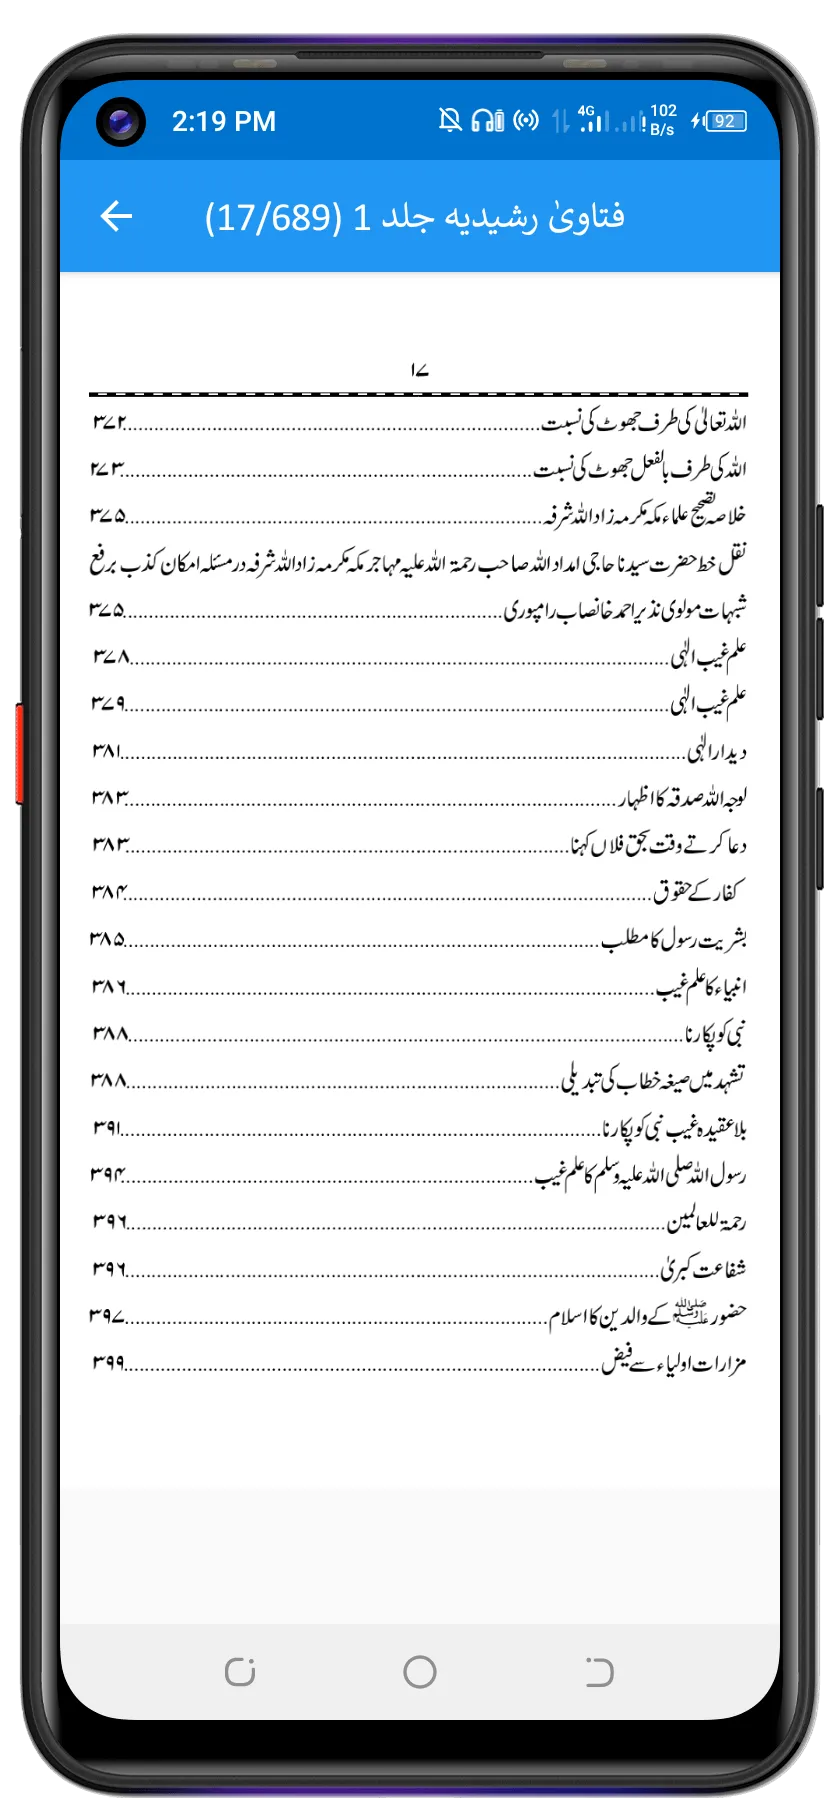 2:19 PM 4G 102 B/s 92
فتاویٰ رشیدیه جلد 1 (17/689)
۱۷
اللہ تعالیٰ کی طرف جھوٹ کی نسبت ۳۷۲
اللہ کی طرف بالفعل جھوٹ کی نسبت ۲۷۳
خلاصہ تصحیح علماء مکہ مکرمہ زاد اللہ شرفہ ۳۷۵
نقل خط حضرت سیدنا حاجی امداد اللہ صاحب رحمۃ اللہ علیہ مہاجر مکہ مکرمہ زاد اللہ شرفہ در مسئلہ امکان کذب برفع
شبہات مولوی نذیر احمد خانصاب رامپوری ۳۷۵
علم غیب الٰہی ۳۷۸
علم غیب الٰہی ۳۷۹
دیدار الٰہی ۳۸۱
لوجہ اللہ صدقہ کا اظہار ۳۸۳
دعا کرتے وقت بحق فلاں کہنا ۳۸۳
کفار کے حقوق ۳۸۴
بشریت رسول کا مطلب ۳۸۵
انبیاء کا علم غیب ۳۸۶
نبی کو پکارنا ۳۸۸
تشہد میں صیغہ خطاب کی تبدیلی ۳۸۸
بلا عقیدہ غیب نبی کو پکارنا ۳۹۱
رسول اللہ صلی اللہ علیہ وسلم کا علم غیب ۳۹۴
رحمۃ للعالمین ۳۹۶
شفاعت کبریٰ ۳۹۶
حضور ﷺ کے والدین کا اسلام ۳۹۷
مزارات اولیاء سے فیض ۳۹۹